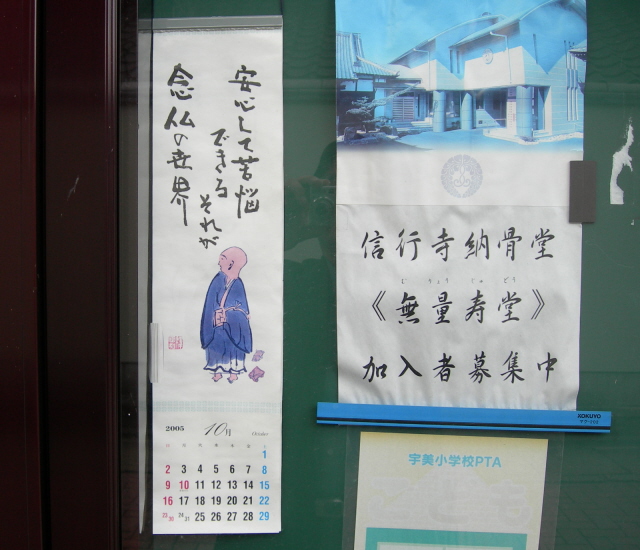 安心して苦悩
できる
それが
念仏の世界
2005 10月 October
1
2 3 4 5 6 7 8
9 10 11 12 13 14 15
16 17 18 19 20 21 22
23/30 24/31 25 26 27 28 29
信行寺納骨堂
むりょうじゅどう
《無量寿堂》
加入者募集中
KOKUYO
宇美小学校PTA